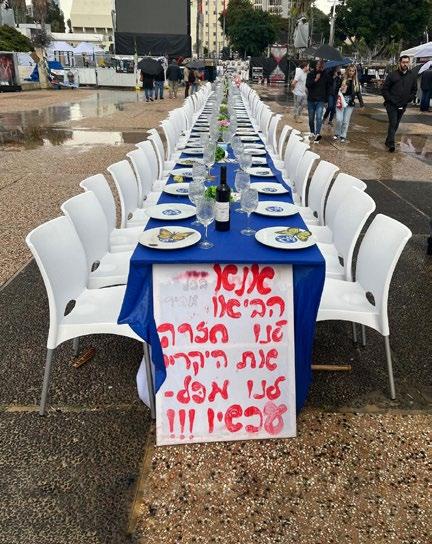 אנא
הביאו
לנו חזרה
את היקרים
לנו מכל-
עכשיו !!!